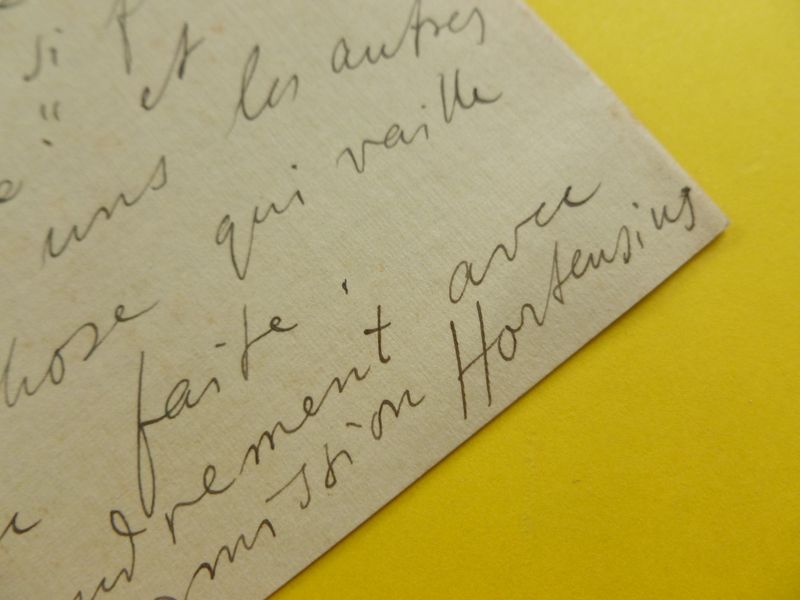 si
" et les autres
uns qui vaille
hose faite.
drement avec
mission Hortensius